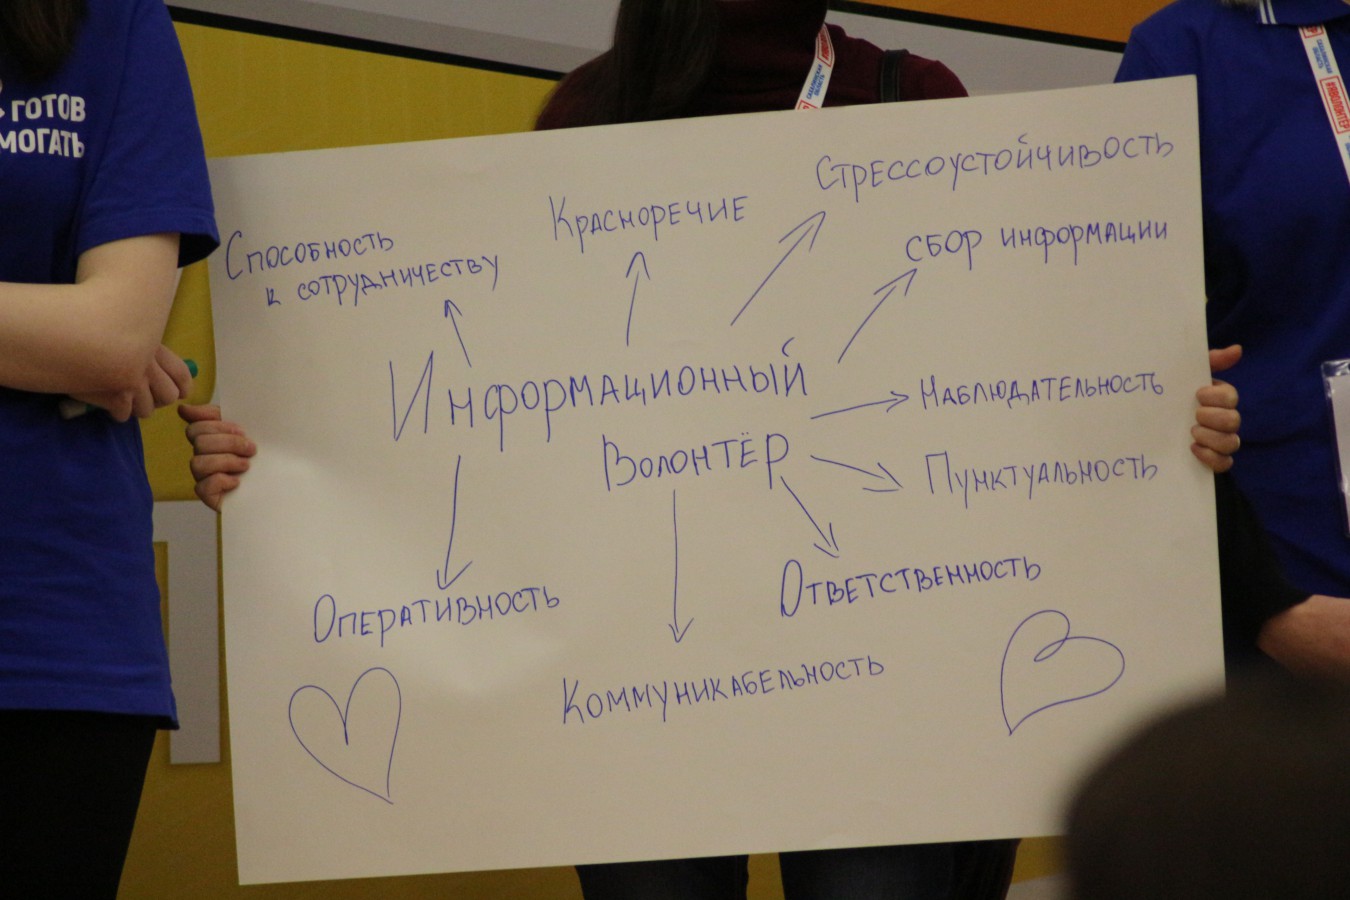 ГОТОВ
МОГАТЬ
САХАЛИНСКАЯ
ОБЛАСТЬ
#ЯВОЛОНТЕР
Стрессоустойчивость
Красноречие
сбор информации
Способность
к сотрудничеству
Информационный
Волонтёр
Наблюдательность
Пунктуальность
Ответственность
Оперативность
Коммуникабельность